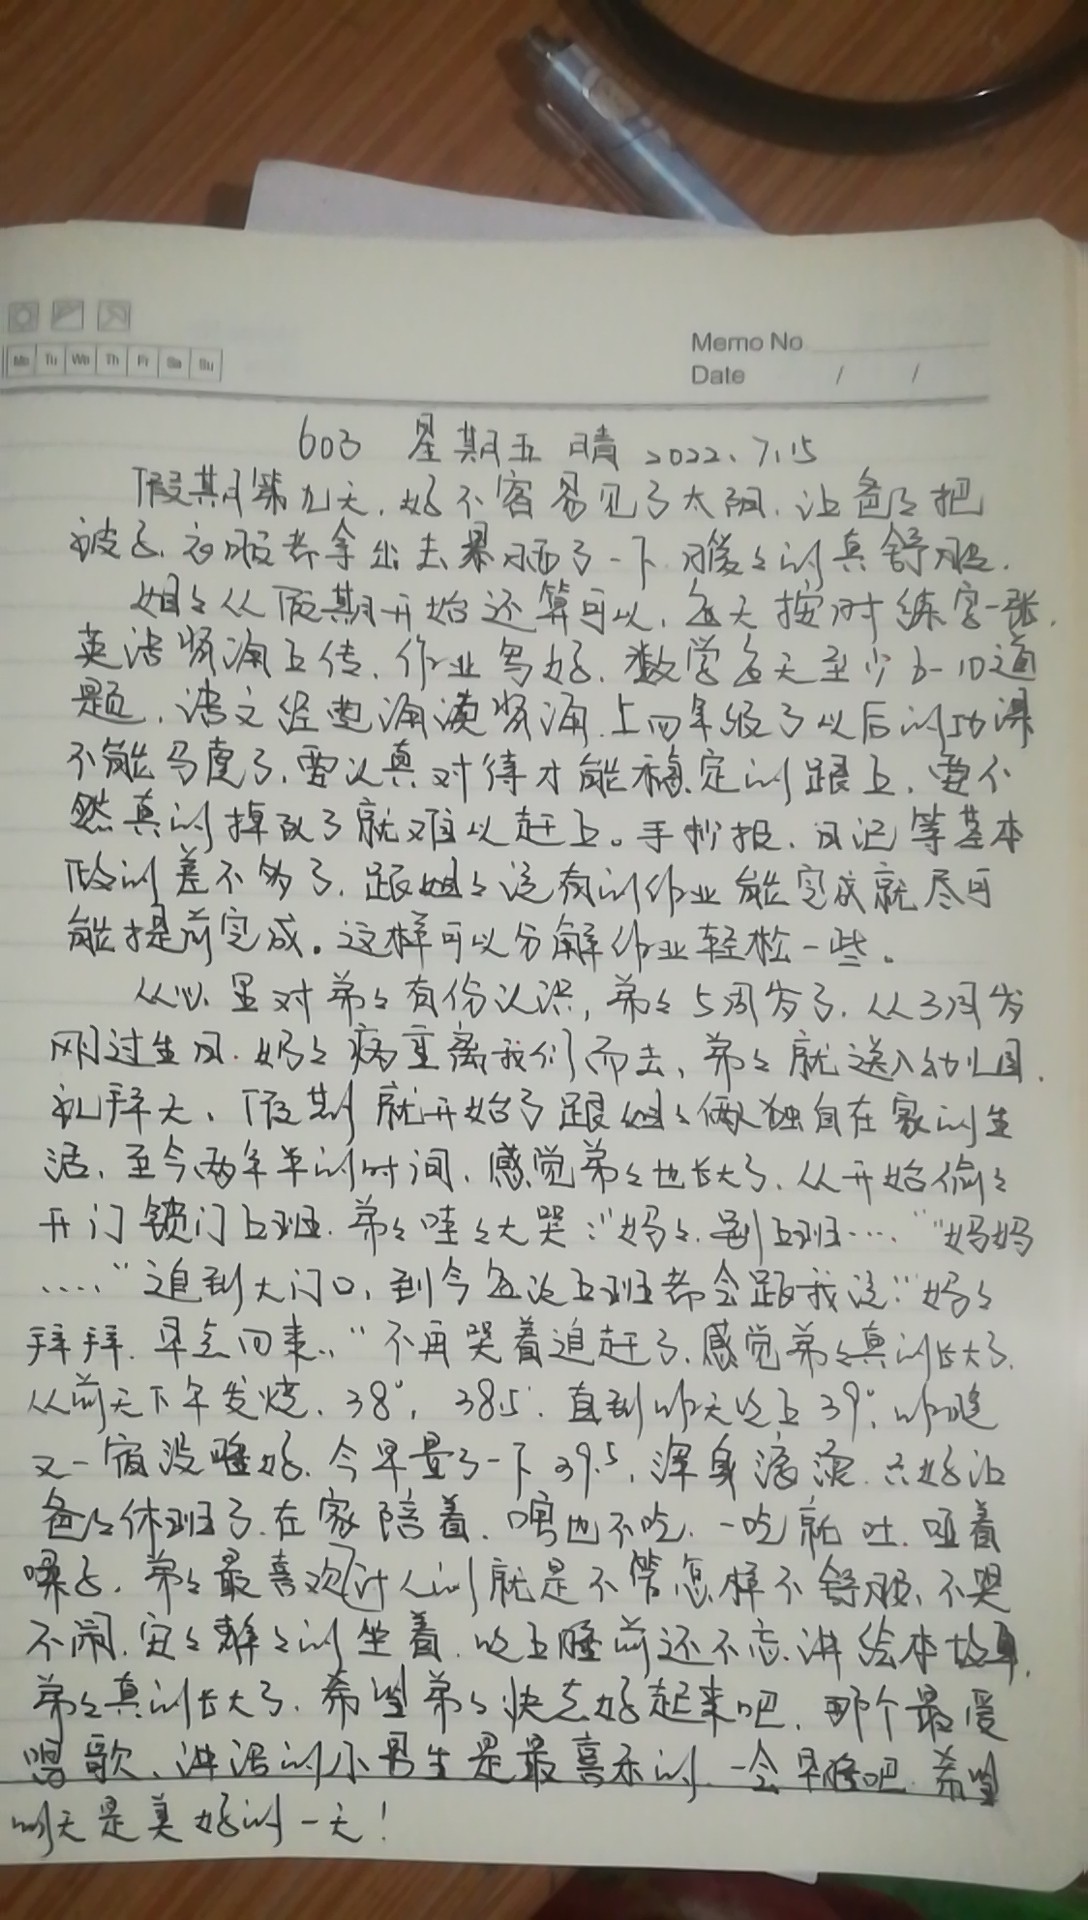 Mo Tu We Th Fr Sa Su
Memo No
Date / /
603 星期五 晴 2022.7.15
假期第九天,好不容易见了太阳,让爸爸把
被子、衣服都拿出去暴晒了一下,暖暖的真舒服.
姐姐从假期开始还算可以,每天按时练字一张,
英语背诵上传,作业写好,数学每天至少6-10道
题,语文经典诵读背诵,上四年级了以后的功课
不能马虎了,要认真对待才能稳定的跟上,要不
然真的掉队了就难以赶上。手抄报、日记等基本
做的差不多了,跟姐姐说有的作业能完成就尽可
能提前完成。这样可以分解作业轻松一些。
从心里对弟弟有份认识,弟弟5周岁了,从3周岁
刚过生日,妈妈病重离我们而去,弟弟就送入幼儿园,
礼拜天、假期就开始了跟姐姐俩人独自在家的生
活,至今两年半的时间,感觉弟弟也长大了,从开始偷偷
开门锁门上班,弟弟哇哇大哭:"妈妈,别上班…""妈妈
……"追到大门口,到今每次上班都会跟我说:"妈妈
拜拜,早点回来."不再哭着追赶了,感觉弟弟真的长大了.
从前天下午发烧,38°,38.5,直到昨天晚上39°,昨晚
又一宿没睡好,今早量了一下39.5,浑身滚烫,只好让
爸爸休班了,在家陪着,嘴也不吃,一吃就吐,哑着
嗓子,弟弟最喜欢讨人的就是不管怎样不舒服,不哭
不闹,安安静静的坐着,晚上睡前还不忘讲绘本故事,
弟弟真的长大了,希望弟弟快点好起来吧,那个最爱
唱歌、讲话的小男生是最喜乐的,一会早睡吧,希望
明天是美好的一天!